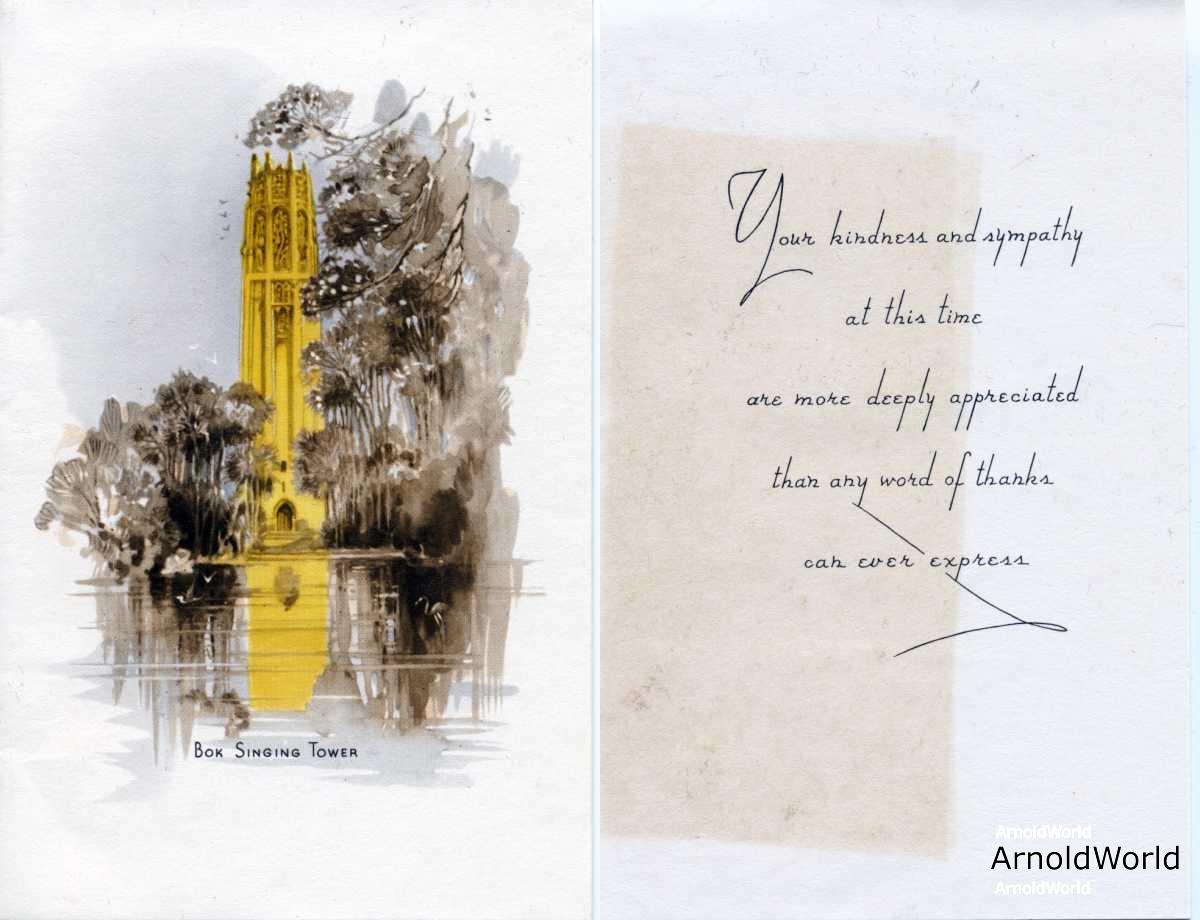 Bok Singing Tower
Your kindness and sympathy
at this time
are more deeply appreciated
than any word of thanks
can ever express
ArnoldWorld
ArnoldWorld
ArnoldWorld